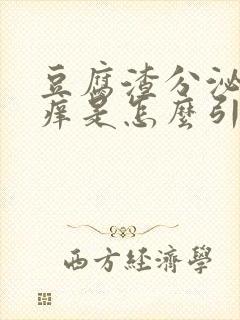 豆腐渣分泌
痒是怎麼引
西方經濟學